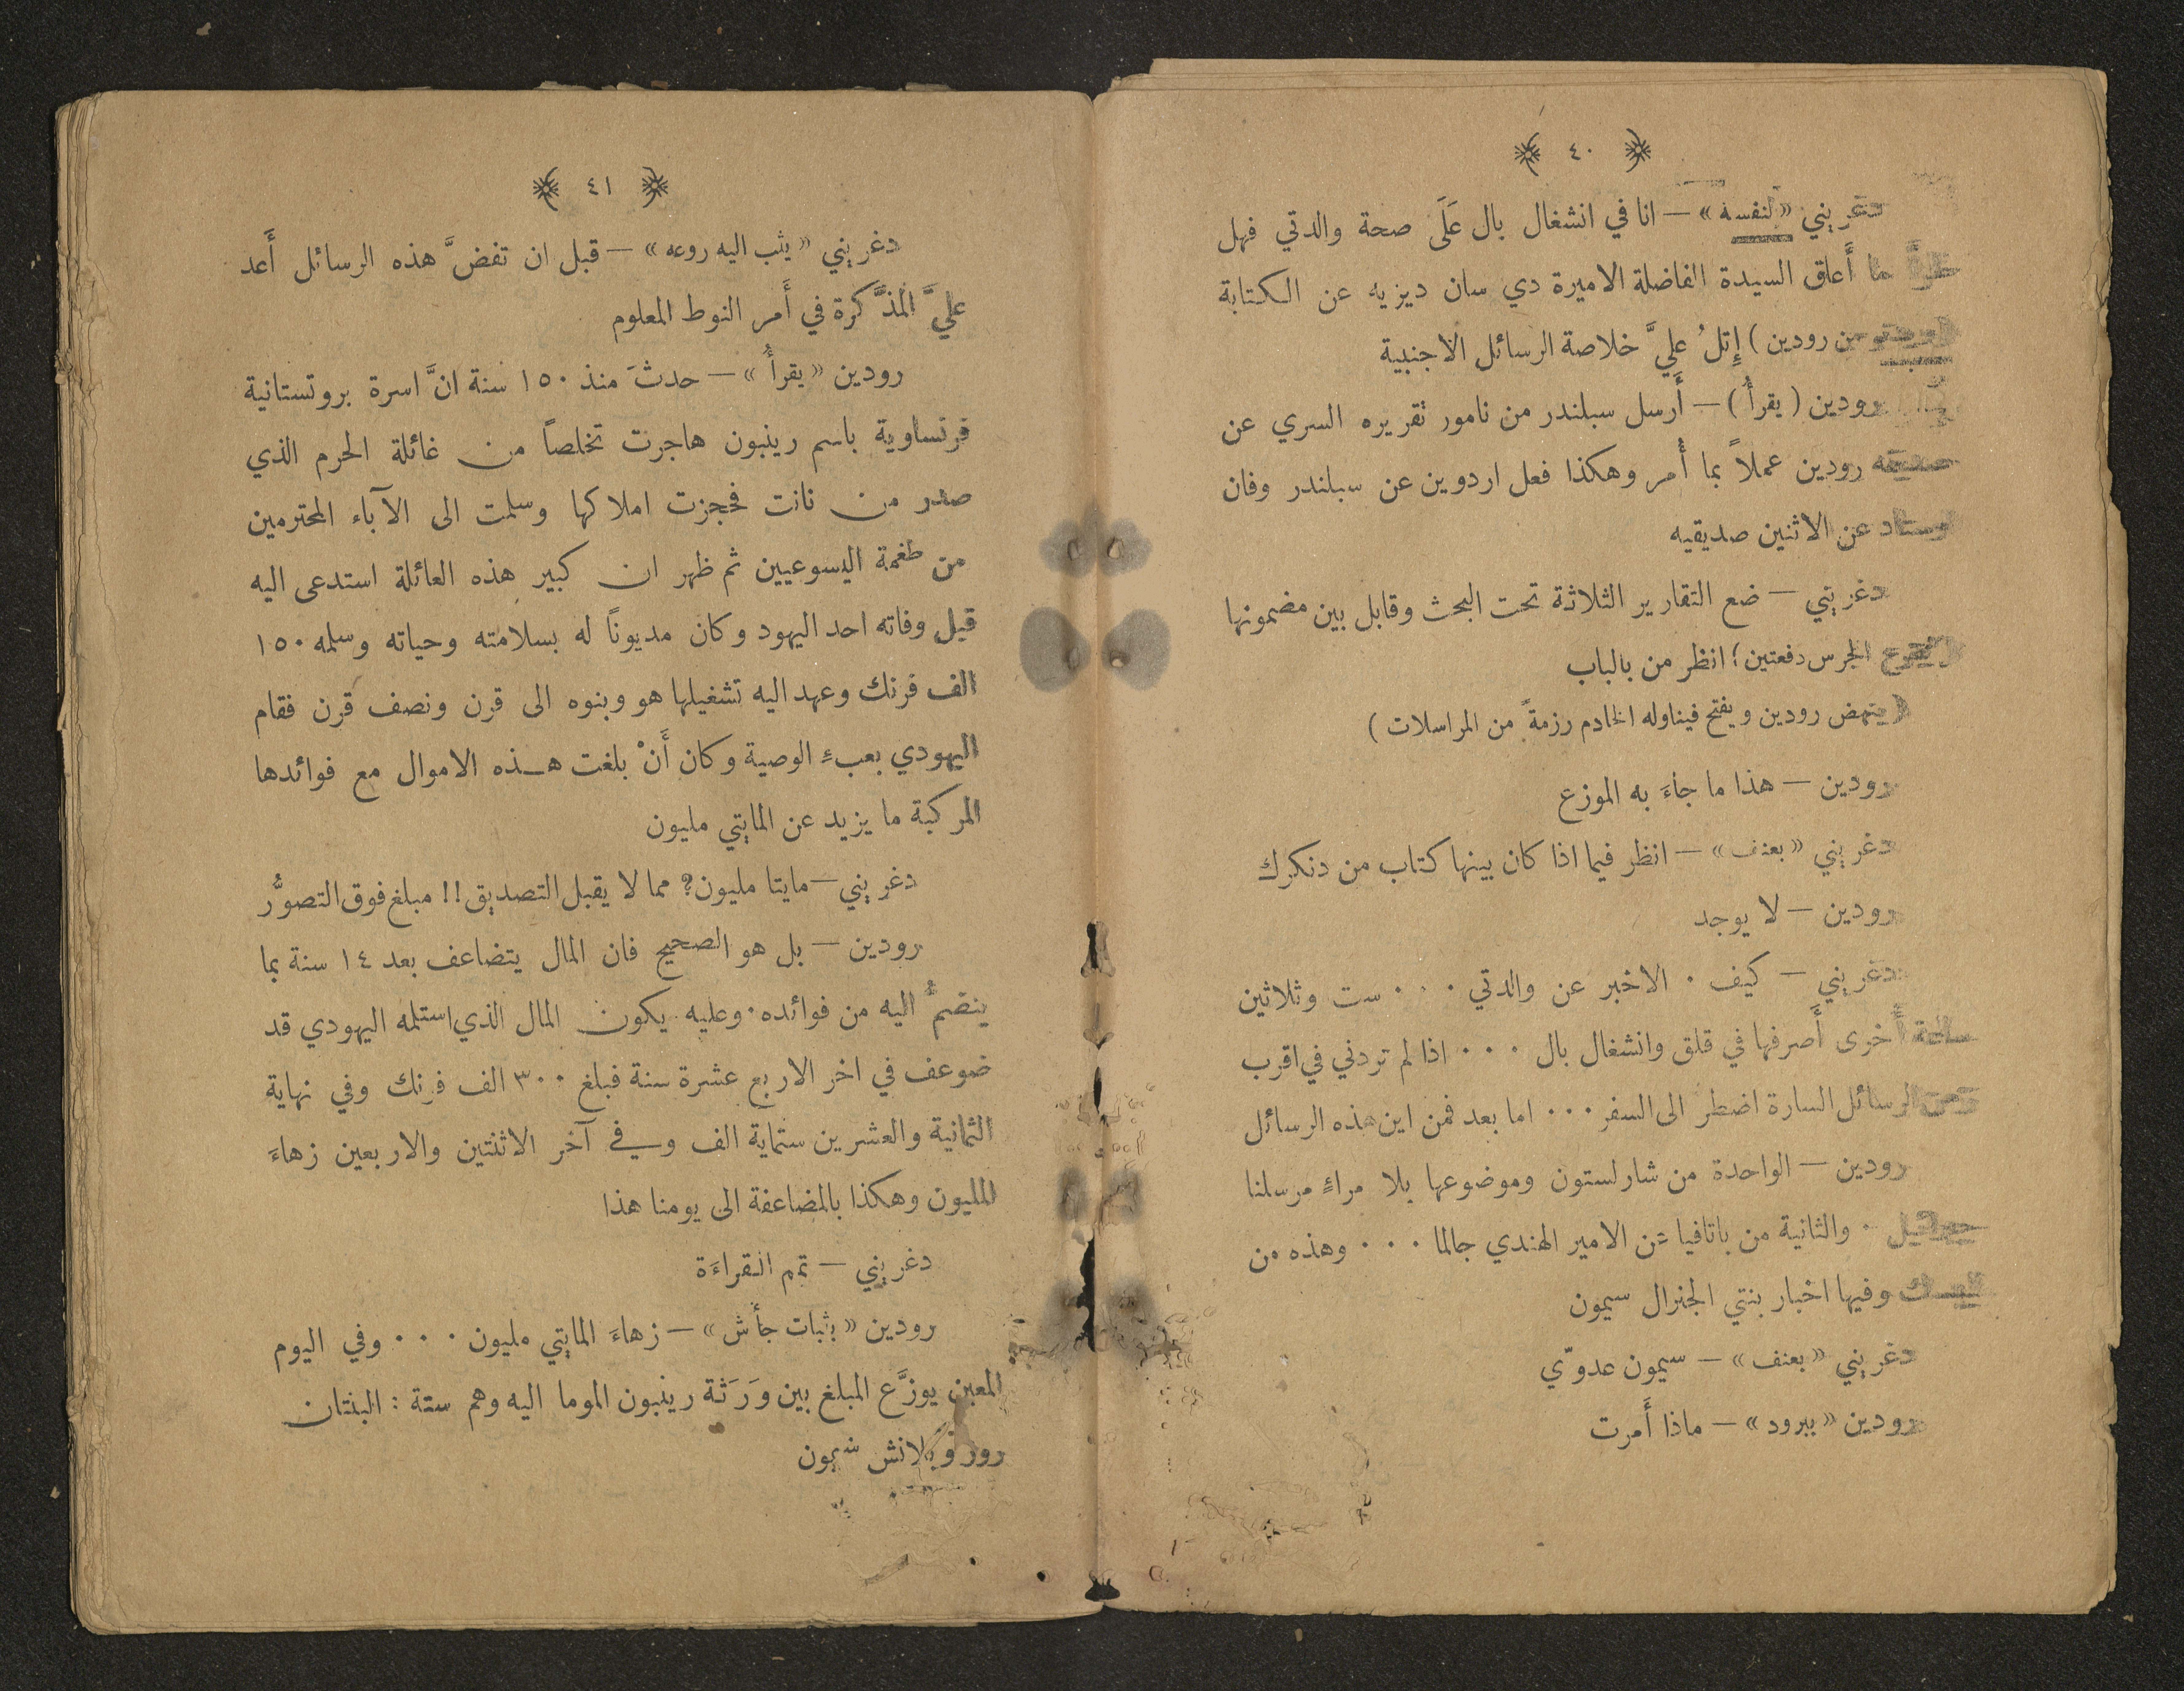 ٤٠
دغريني «لنفسه» — انا في انشغال بال عَلَى صحة والدتي فهل
ما أَعاق السيدة الفاضلة الاميرة دي سان ديزيه عن الكتابة
من رودين) إِتلُ عليَّ خلاصة الرسائل الاجنبية
رودين (يقرأُ) — أَرسل سبلندر من نامور تقريره السري عن
صديقه رودين عملاً بما أُمر وهكذا فعل اردوين عن سبلندر وفان
عن الاثنين صديقيه
دغريني — ضع التقارير الثلاثة تحت البحث وقابل بين مضمونها
الجرس دفعتين؛ انظر من بالباب
(ينهض رودين ويفتح فيناوله الخادم رزمةً من المراسلات)
رودين — هذا ما جاءَ به الموزع
دغريني «بعنف» — انظر فيما اذا كان بينها كتاب من دنكرك
رودين — لا يوجد
دغريني — كيف ٠ الاخبر عن والدتي ٠٠٠ ست وثلاثين
ساعة أُخرى أَصرفها في قلق وانشغال بال ٠٠٠ اذا لم تردني في اقرب
الرسائل السارة اضطر الى السفر ٠٠٠ اما بعد فمن اين هذه الرسائل
رودين — الواحدة من شارلستون وموضوعها بلا مراءٍ مرسلنا
٠ والثانية من باتافيا عن الامير الهندي جالما ٠٠٠ وهذه من
وفيها اخبار بنتي الجنرال سيمون
دغريني «بعنف» — سيمون عدوّي
رودين «ببرود» — ماذا أَمرت
٤١
دغريني «يثب اليه روعه» — قبل ان تفضَّ هذه الرسائل أَعد
عليَّ المذَّكرة في أَمر النوط المعلوم
رودين «يقرأُ» — حدثَ منذ ١٥٠ سنة انَّ اسرة بروتستانية
فرنساوية باسم رينبون هاجرت تخلصاً من غائلة الحرم الذي
صدر من نانت فحجزت املاكها وسلمت الى الآباء المحترمين
من طغمة اليسوعيين ثم ظهر ان كبير هذه العائلة استدعى اليه
قبل وفاته احد اليهود وكان مديوناً له بسلامته وحياته وسلمه ١٥٠
الف فرنك وعهد اليه تشغيلها هو وبنوه الى قرن ونصف قرن فقام
اليهودي بعبءِ الوصية وكان أَنْ بلغت هذه الاموال مع فوائدها
المركبة ما يزيد عن المايتي مليون
دغريني — مايتا مليون؟ مما لا يقبل التصديق!! مبلغ فوق التصوُّر
رودين — بل هو الصحيح فان المال يتضاعف بعد ١٤ سنة بما
ينضمُّ اليه من فوائده ٠ وعليه يكون المال الذي استلمه اليهودي قد
ضوعف في اخر الاربع عشرة سنة فبلغ ٣٠٠ الف فرنك وفي نهاية
الثمانية والعشرين ستماية الف وفي آخر الاثنتين والاربعين زهاءَ
المليون وهكذا بالمضاعفة الى يومنا هذا
دغريني — تمم القراءَة
رودين «بثبات جأش» — زهاءَ المايتي مليون ٠٠٠ وفي اليوم
المعين يوزَّع المبلغ بين وَرَثة رينبون الموما اليه وهم ستة : البنتان
روز وبلانش سيمون